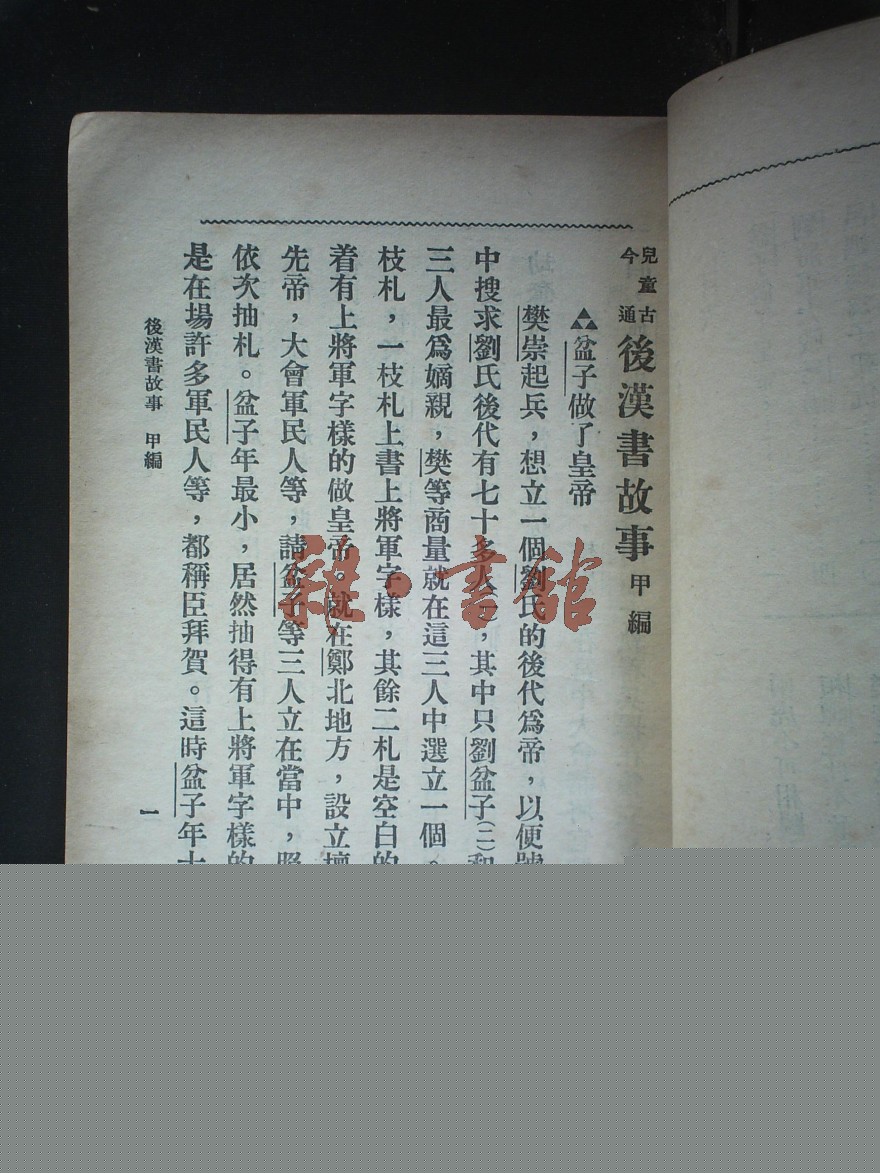 兒童古今通
後漢書故事 甲編
盆子做了皇帝
樊崇起兵，想立一個劉氏的後代爲帝，以便號
中搜求劉氏後代有七十多人(一)，其中只劉盆子(二)和
三人最爲嫡親，樊等商量就在這三人中選立一個。
枝札，一枝札上書上將軍字樣，其餘二札是空白的
着有上將軍字樣的做皇帝。就在鄭北地方，設立壇
先帝，大會軍民人等，請盆子等三人立在當中，照
依次抽札。盆子年最小，居然抽得有上將軍字樣的
是在場許多軍民人等，都稱臣拜賀。這時盆子年十
後漢書故事 甲編
一
雜·書館